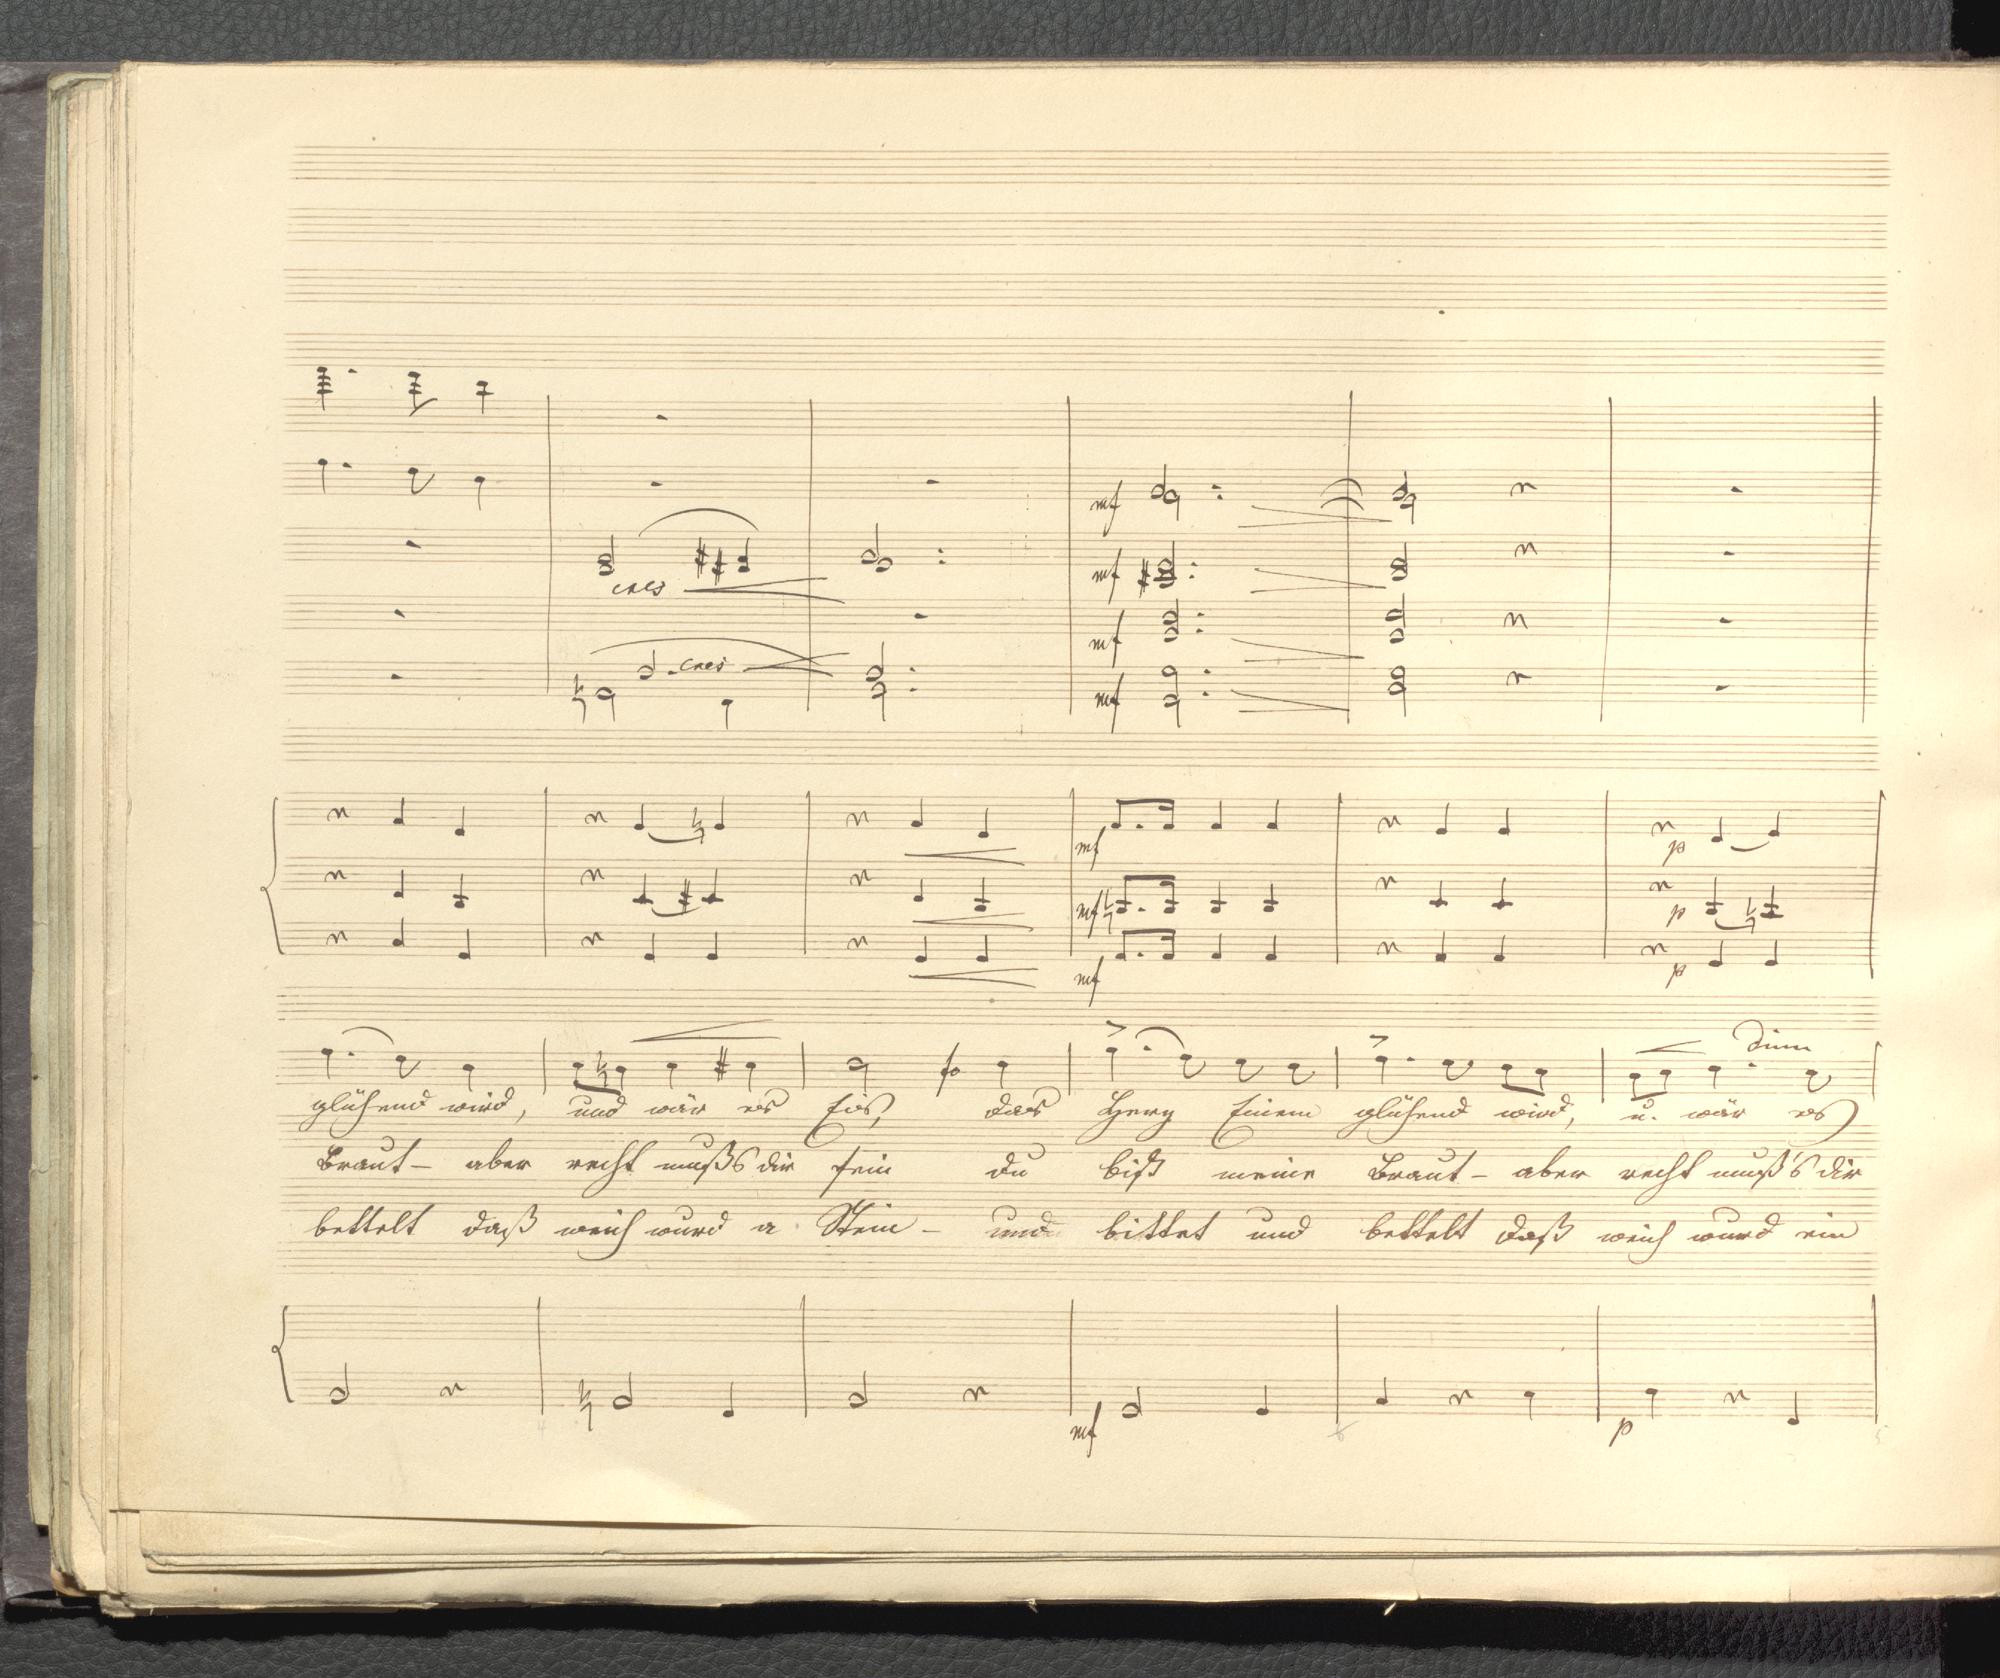 mf
cres
mf
mf
cres
mf
mf
p
mf
p
mf
p
dim
glühend wird, und wär es Eis, das Herz Einem glühend wird, u. wär es
Braut – aber recht muß's dir sein du bist meine Braut – aber recht muß's dir
bettelt daß weich wurd a Stein – und bittet und bettelt daß weich wurd ein
mf
p